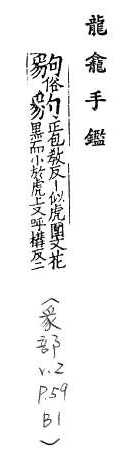 龍龕手鑑
豿俗豹正包教反丨似虎圓文花
黑而小於虎上又呼構反二
〈豸部 v.2 P.59 B1〉